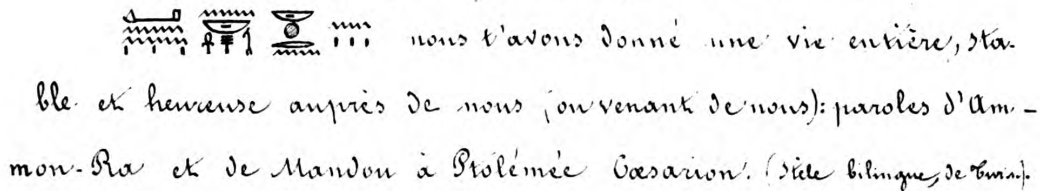 nous t'avons donné une vie entière, sta-
ble et heureuse auprès de nous (ou venant de nous): paroles d'Am-
mon-Ra et de Mandou à Ptolémée Cæsarion. (Stèle bilingue, de Turin).